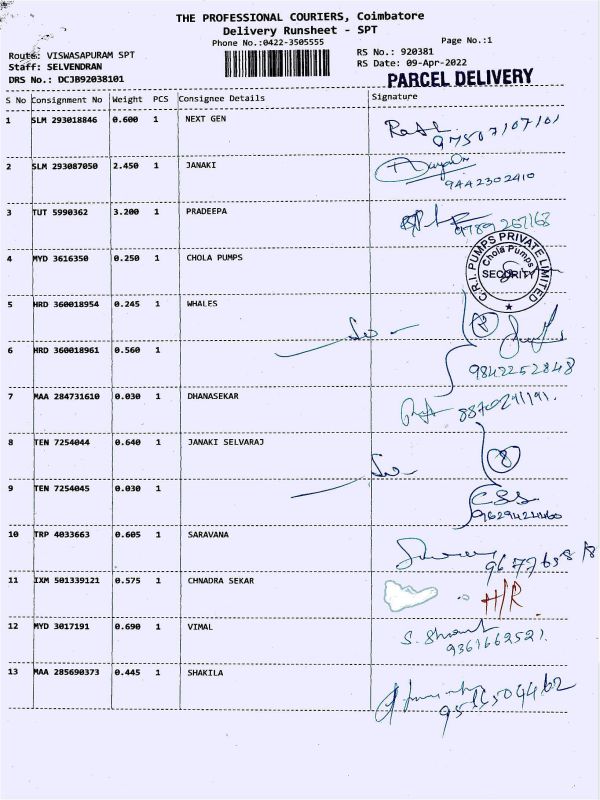 THE PROFESSIONAL COURIERS, Coimbatore
Delivery Runsheet - SPT
Phone No.:0422-3505555
Page No.:1
Route: VISWASAPURAM SPT
RS No.: 920381
Staff: SELVENDRAN
RS Date: 09-Apr-2022
DRS No.: DCJB92038101
PARCEL DELIVERY
S No Consignment No Weight PCS Consignee Details Signature
1 SLM 293018846 0.600 1 NEXT GEN
97507107101
2 SLM 293087050 2.450 1 JANAKI
9442302410
3 TUT 5990362 3.200 1 PRADEEPA
9789267168
4 MYD 3616350 0.250 1 CHOLA PUMPS
C.R.I. PUMPS PRIVATE LIMITED
Chola Pumps
SECURITY
5 HRD 360018954 0.245 1 WHALES
6 HRD 360018961 0.560 1
9842252848
7 MAA 284731610 0.030 1 DHANASEKAR
8870291191.
8 TEN 7254044 0.640 1 JANAKI SELVARAJ
8
9 TEN 7254045 0.030 1
CSS
10 TRP 4033663 0.605 1 SARAVANA
11 IXM 501339121 0.575 1 CHNADRA SEKAR
H/R
12 MYD 3017191 0.690 1 VIMAL
9361662521.
13 MAA 285690373 0.445 1 SHAKILA